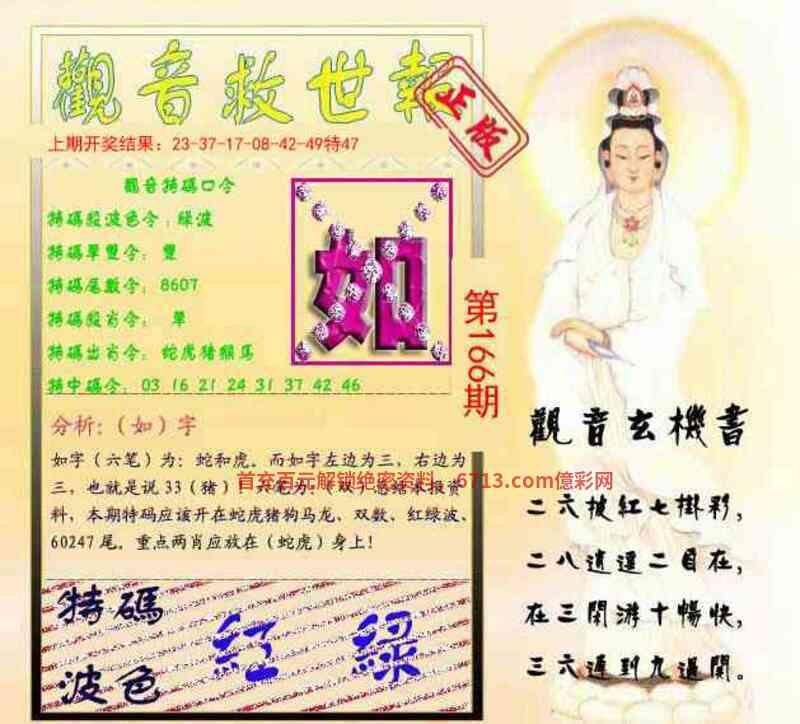 觀音救世報
正版
上期开奖结果：23-37-17-08-42-49特47
觀音特碼口令
特碼殺波色令：綠波
特碼單雙令：雙
特碼尾數令：8607
特碼殺肖令：單
特碼出肖令：蛇虎猪猴馬
特中碼令：03 16 21 24 31 37 42 46
如
第166期
分析:（如）字
如字（六笔）为：蛇和虎。而如字左边为三，右边为
三，也就是说 33（猪）！六笔为：（双）总结本报资
料，本期特码应该开在蛇虎猪狗马龙、双数、红绿波、
60247 尾。重点两肖应放在（蛇虎）身上！
首充百元解锁绝密资料：6713.com億彩网
特碼
波色
紅 綠
觀音玄機書
二六披紅七掛彩，
二八逍遥二自在，
在三閑游十暢快，
三六連到九過關。